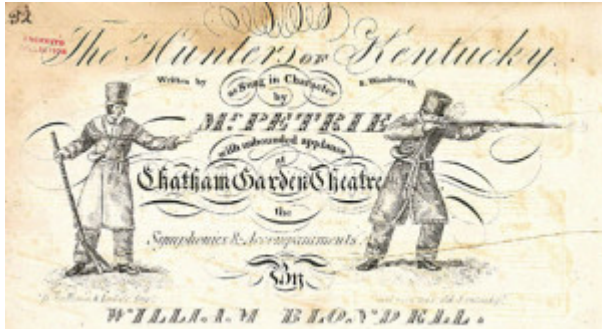 52
The Hunters OF Kentucky.
Written by as Sung in Character S. Woodworth
by
Mr. PETRIE
with unbounded applause
at
Chatham Garden Theatre
the
Symphonies & Accompaniments.
By
WILLIAM BLONDELL.